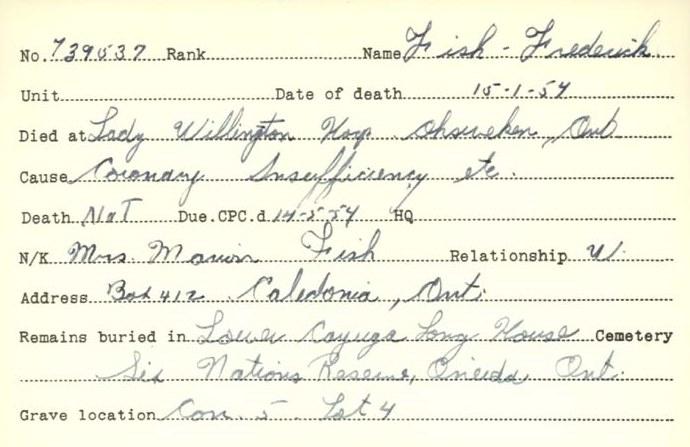 No. 739537 Rank Name Fish - Frederick
Unit Date of death 15-1-54
Died at Lady Willington Hosp Ohsweken, Ont
Cause Coronary Insufficiency etc.
Death NOT Due. CPC.d 14-5-54 HQ
N/K Mrs. Marion Fish Relationship W.
Address Box 412 Caledonia, Ont.
Remains buried in Lower Cayuga Long House Cemetery
Six Nations Reserve, Oneida Ont.
Grave location Con. 5 Lot 4